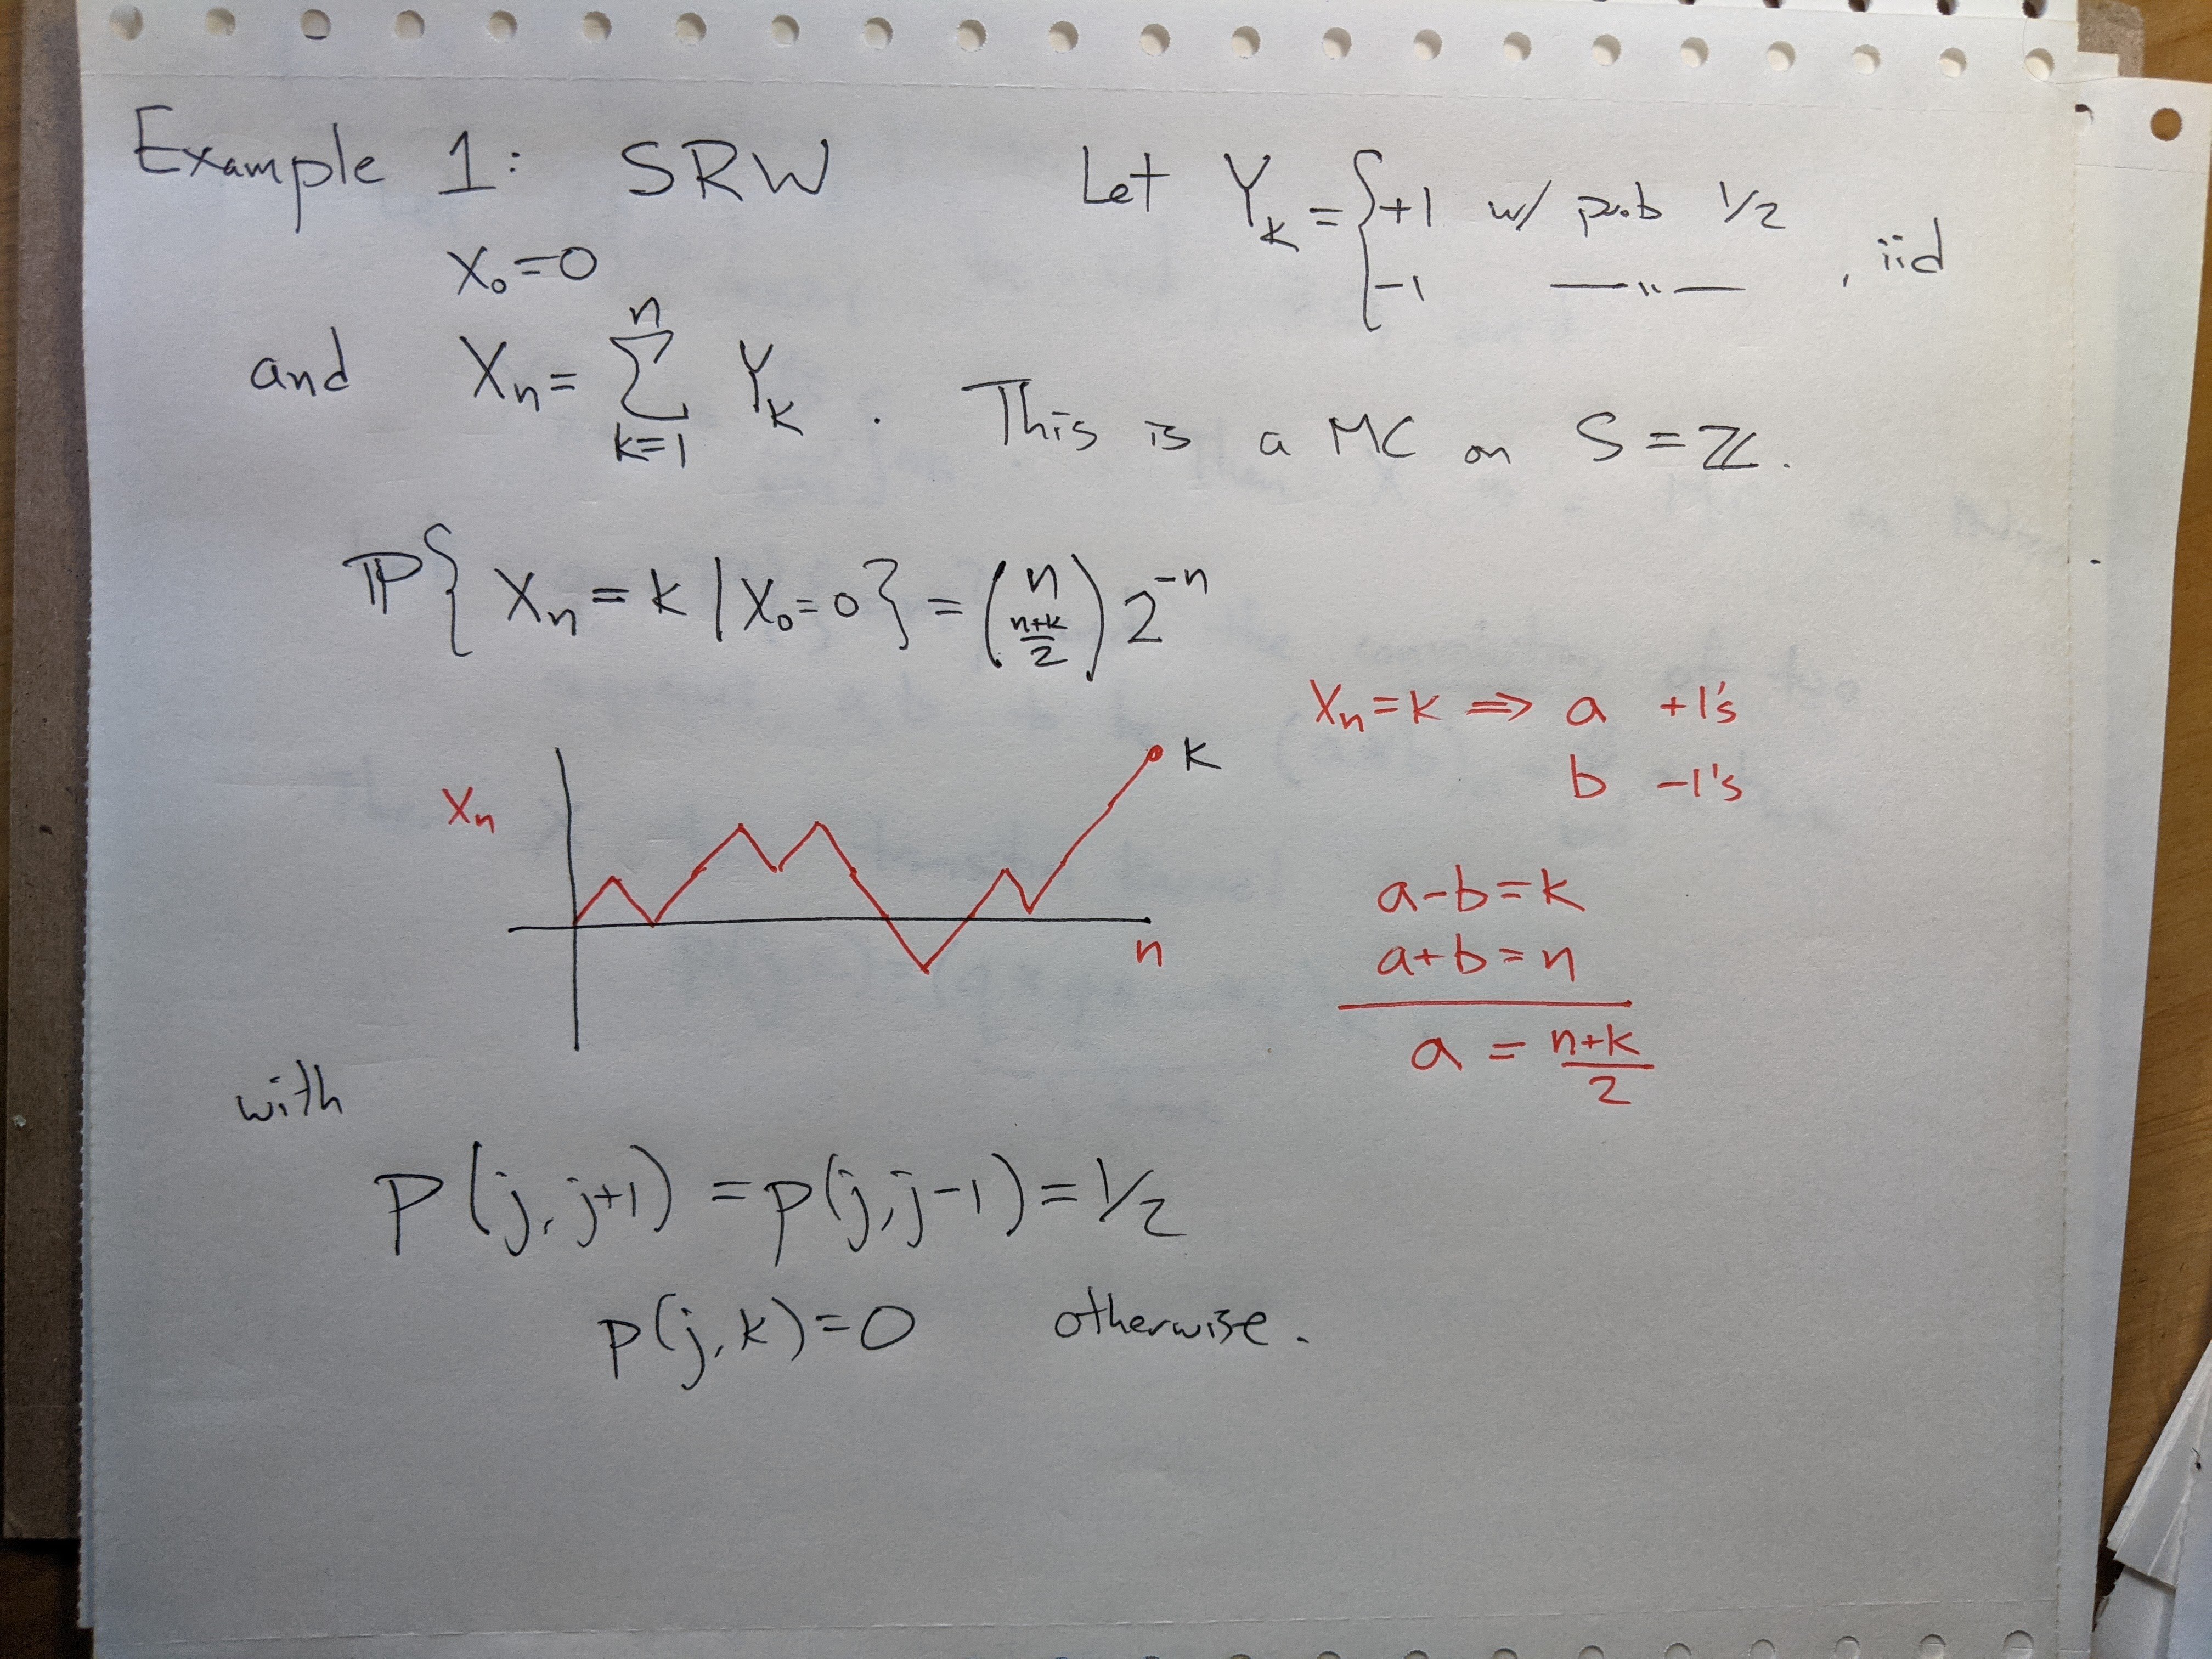 Example 1: SRW Let Y_k = { +1 w/ prob 1/2
-1 —〃— , iid
X_0 = 0
and X_n = \sum_{k=1}^{n} Y_k . This is a MC on S = ℤ.
ℙ{ X_n = k | X_0 = 0 } = \binom{n}{\frac{n+k}{2}} 2^{-n}
X_n = k ⇒ a +1's
b -1's
k
X_n
n
a-b=k
a+b=n
a = \frac{n+k}{2}
with
p(j, j+1) = p(j, j-1) = 1/2
p(j, k) = 0 otherwise.